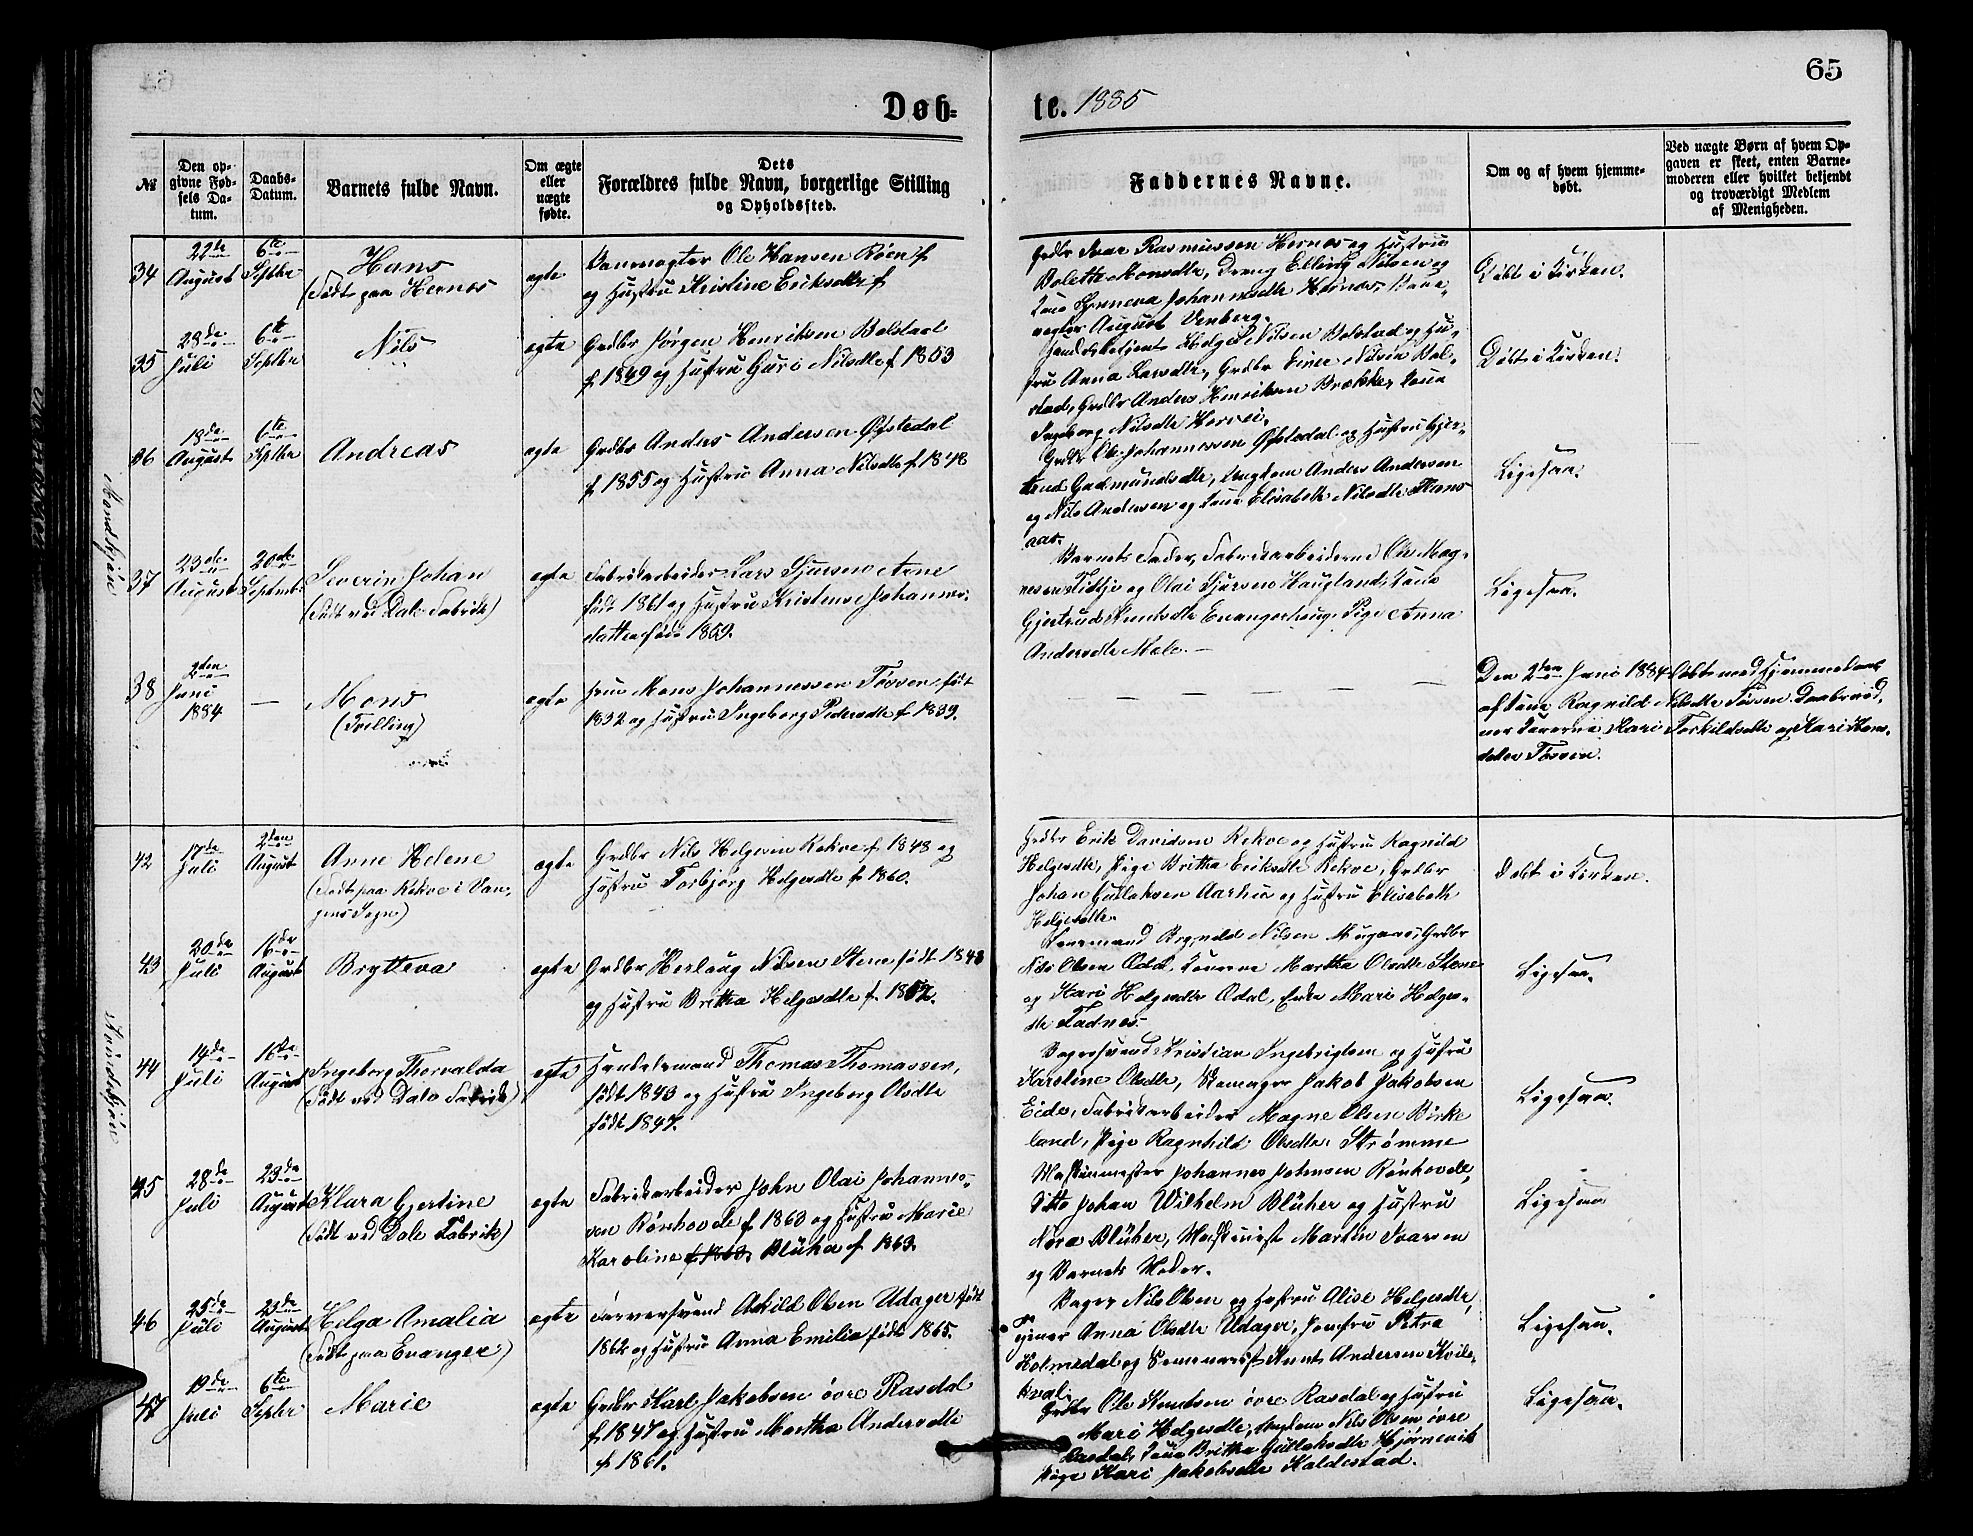 65
Døb-
te. 1885
№
Den op-
givne Fød-
sels Da-
tum.
Daabs-
Datum.
Barnets fulde Navn.
Om ægte
eller
uægte
fødte.
Dets
Forældres fulde Navn, borgerlige Stilling
og Opholdssted.
Faddernes Navne.
Om og af hvem hjemme-
døbt.
Ved uægte Børn af hvem Op-
gaven er skeet, enten Barne-
moderen eller hvilket bekjendt
og troværdigt Medlem
af Menigheden.
Mandkjøn
34
22de
August
6te
Septbr
Hans
(Født paa Hernes
ægte
Banevogter Ole Hansen Røen f
og Hustru Kristine Eriksdtr f
Grdbr Ivar Rasmussen Hernes og Hustru
Bolette Monsdtr, Dreng Elling Nilsen og
Johannesdtr Hernes, Bane-
vogter August Venberg.
Døbt i Kirken.
35
28de
Juli
6te
Septbr
Nils
ægte
Grdbr Jørgen Henriksen Bolstad
f 1849 og Hustru Guro Nilsdtr f 1853
Handelsbetjent Helge Nilsen Bolstad og Hu-
stru Anna Larsdtr, Grdbr Einar Nilsen Bol-
stad, Grdbr Anders Henriksen Brække, Taus
Ingeborg Nilsdtr Horvei.
Døbt i Kirken.
36
18de
August
6te
Septbr
Andreas
ægte
Grdbr Anders Andersen Øfstedal
f 1855 og Hustru Anna Nilsdtr f 1848
Grdbr Ole Johannessen Øfstedal og Hustru Gjer-
trud Gudmundsdtr, Ungkom Anders Andersen
og Nils Andersen og Taus Elisabeth Nilsdtr Mons
aas.
Ligesaa.
37
23de
August
20de
Septembr
Severin Johan
(Født ved Dale Fabrik)
ægte
Fabrikarbeider Lars Sjursen Arne
født 1861 og Hustru Kristense Johannes-
datter født 1859.
Barnets Fader, Fabrikarbeiderne Ole Mag-
nesen Tidtje og Olai Sjursen Haugland, Taus
Gjertrud Knudsdtr Evangerhaug, Pige Anna
Andersdtr Male. —
Ligesaa.
38
2den
Juni
1884
—
Mons
(Tvilling)
ægte
Huus Mons Johannessen Tøssen, født
1832 og Hustru Ingeborg Pedersdtr f 1839.
— — — — —
Den 2den Juni 1884 døbt med Hjemmedaab
af Taus Ragnild Nilsdtr Tøssen. Daabsvid-
ner Tauserne Mari Torkildsdtr og Kari Mons-
datter Tøssen.
Kvindekjøn
42
17de
Juli
2den
August
Anne Helene
(Født paa Rekve i Van-
gens Sogn)
ægte
Grdbr Nils Helgesen Rekve f 1848 og
Hustru Torbjørg Helgesdtr f 1860.
Grdbr Erik Davidsen Rekve og Hustru Ragnild
Helgesdtr, Pige Britha Eriksdtr Rekve, Grdbr
Johan Gullaksen Aarhus og Hustru Elisabeth
Helgesdtr.
Døbt i Kirken.
43
20de
Juli
16de
August
Brytteva
ægte
Grdbr Herlaug Nilsen Stene født 1843
og Hustru Britha Helgesdtr f. 1852.
Lensmand Brynild Nilsen Mugaas, Grdbr
Nils Olsen Odd, Tauserne Martha Olsdtr Stene
og Kari Helgesdtr Odal, Enke Mari Helges-
dtr Fadnes.
Ligesaa.
44
14de
Juli
16de
August
Ingeborg Thorvalda
(Født ved Dale Fabrik)
ægte
Handelsmand Thomas Thomassen,
født 1843 og Hustru Ingeborg Olsdtr
født 1847.
Bagersvend Kristian Ingebrigtsen og Hustru
Karoline Olsdtr, Skomager Jakob Jakobsen
Eide, Fabrikarbeider Magne Olsen Birke
land, Pige Ragnhild Olsdtr Strømme
Ligesaa.
45
28de
Juli
23de
August
Klara Gjertine
(Født ved Dale Fabrik)
ægte
Fabrikarbeider John Olai Johannes-
sen Rønhovde f 1863 og Hustru Marie
Karoline f 1863. Blüher f 1863.
Maskinmester Johannes Johnsen Rønhovde,
Ditto Johan Wilhelm Blüher og Hustru
Nora Blüher, Maskinist Martin Ivarsen
og Barnets Moder.
Ligesaa
46
25de
Juli
23de
August
Helga Amalia
(Født paa Evanger)
ægte
Farversvend Askild Olsen Udager født
1862 og Hustru Anna Emilia født 1865.
Bager Nils Olsen og Hustru Alise Helgesdtr,
Tjener Anna Olsdtr Udager, Jomfru Petra
Holmedal og Seminarist Knut Andersen Kvile-
kval.
Ligesaa.
47
19de
Juli
6te
Septbr
Marie
ægte
Grdbr Karl Jakobsen øvre Rasdal
f 1847 og Hustru Martha Andersdtr
f 1861.
Grdbr Ole Knudsen øvre Rasdal og Hustru
Mari Helgesdtr, Ungkom Nils Olsen øvre
Rasdal, Taus Britha Gullaksdtr Hjørnevik
Pige Kari Jakobsdtr Kaldestad.
Ligesaa.